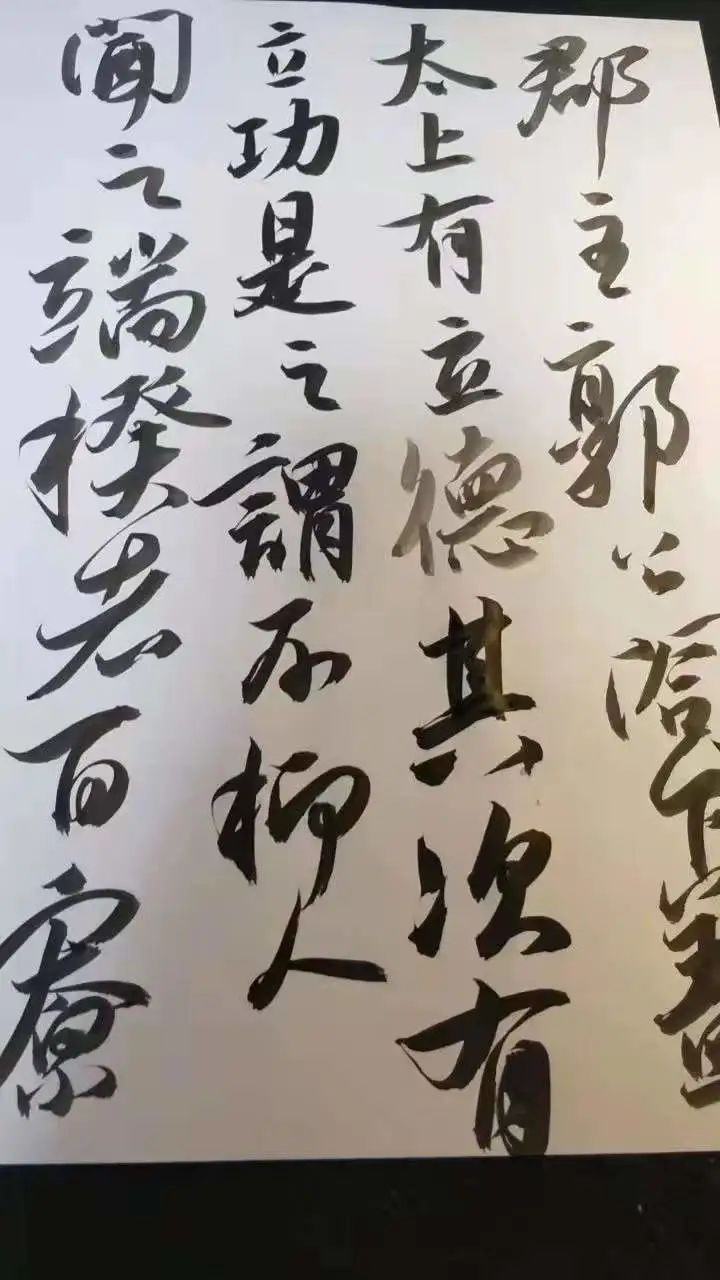 郡主郭公閤下蓋
太上有立德其次有
立功是之謂不柳人
聞之端揆者百寮